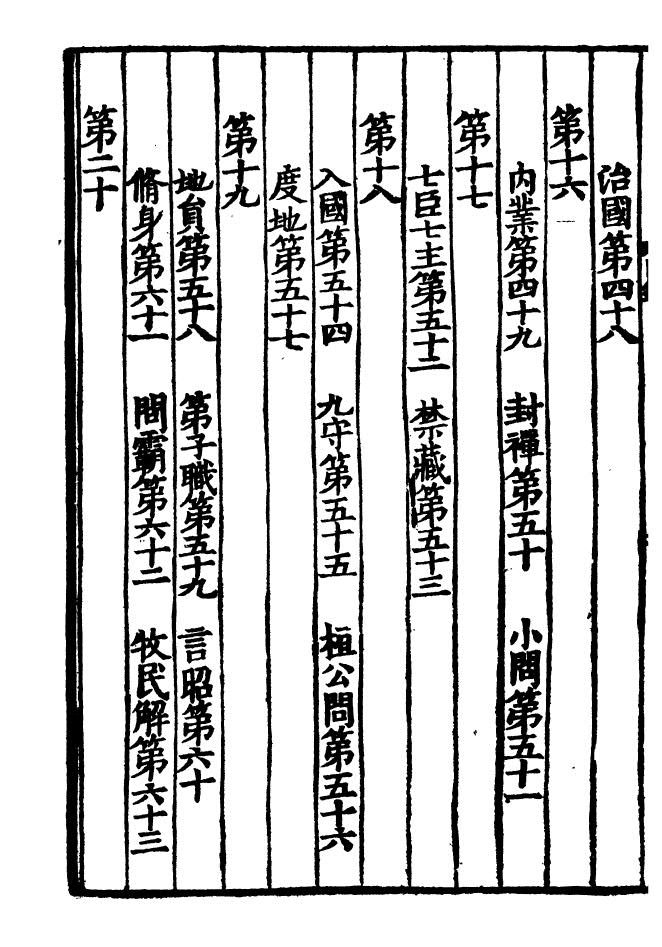 治國第四十八
第十六
內業第四十九 封禪第五十 小問第五十一
第十七
七臣七主第五十二 禁藏第五十三
第十八
入國第五十四 九守第五十五 桓公問第五十六
度地第五十七
第十九
地員第五十八 第子職第五十九 言昭第六十
脩身第六十一 問霸第六十二 牧民解第六十三
第二十